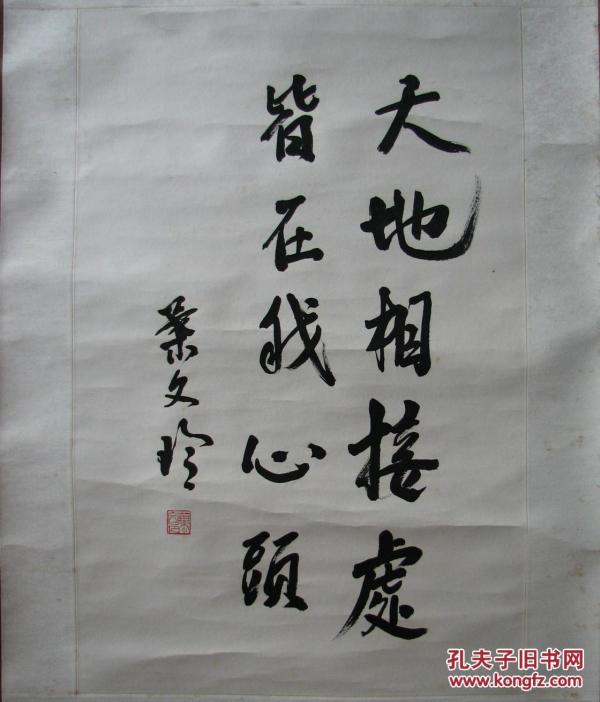 天地相接處
皆在我心頭
葉文玲
孔夫子旧书网
www.kongfz.com